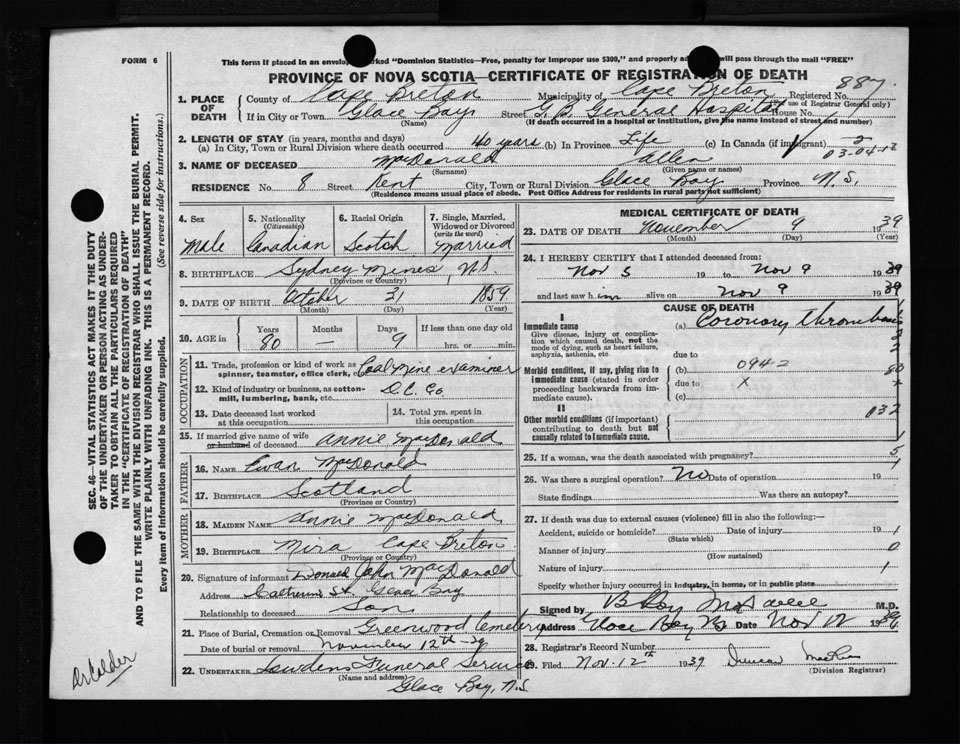 FORM 6
This form if placed in an envelo marked "Dominion Statistics—Free, penalty for improper use $300," and properly ad will pass through the mail "FREE"
PROVINCE OF NOVA SCOTIA—CERTIFICATE OF REGISTRATION OF DEATH
887
1. PLACE OF DEATH
County of Cape Breton Municipality of Cape Breton Registered No.
(For use of Registrar General only)
If in City or Town Glace Bay Street G. B. General Hospital House No.
(Name) (If death occurred in a hospital or institution, give the name instead of street and number)
2. LENGTH OF STAY (in years, months and days)
(a) In City, Town or Rural Division where death occurred 40 years (b) In Province Life (c) In Canada (if immigrant)
3
03-04-12
3. NAME OF DECEASED MacDonald Allen
(Surname) (Given name or names)
RESIDENCE No. 8 Street Kent City, Town or Rural Division Glace Bay Province N.S.
(Residence means usual place of abode. Post Office Address for Residents in rural parts not sufficient)
4. Sex Male
5. Nationality (Citizenship) Canadian
6. Racial Origin Scotch
7. Single, Married, Widowed or Divorced (write the word) Married
8. BIRTHPLACE Sydney Mines, N.S.
(Province or Country)
9. DATE OF BIRTH October 31 1859
(Month) (Day) (Year)
10. AGE in Years 80 Months — Days 9 If less than one day old hrs. or min.
OCCUPATION
11. Trade, profession or kind of work as spinner, teamster, office clerk, etc. Coal Mine examiner
12. Kind of industry or business, as cotton-mill, lumbering, bank, etc. D.C. Co.
13. Date deceased last worked at this occupation
14. Total yrs. spent in this occupation
15. If married give name of wife or husband of deceased Annie MacDonald
FATHER
16. NAME Ewan MacDonald
17. BIRTHPLACE Scotland
(Province or Country)
MOTHER
18. MAIDEN NAME Annie MacDonald
19. BIRTHPLACE Mira Cape Breton
(Province or Country)
20. Signature of informant Donald John MacDonald
Address Catherine St. Glace Bay
Relationship to deceased Son
21. Place of Burial, Cremation or Removal Greenwood Cemetery
Date of burial or removal November 12th-39
22. UNDERTAKER Funeral Service
(Name and address)
Glace Bay, N.S
MEDICAL CERTIFICATE OF DEATH
23. DATE OF DEATH November 9 1939
(Month) (Day) (Year)
24. I HEREBY CERTIFY that I attended deceased from:
Nov 5 19 to Nov 9 1939
and last saw him alive on Nov 9 1939
CAUSE OF DEATH
I
Immediate cause
Give disease, injury or complication which caused death, not the mode of dying, such as heart failure, asphyxia, asthenia, etc.
(a) Coronary thrombosis
due to
Morbid conditions, if any, giving rise to immediate cause (stated in order proceeding backwards from immediate cause).
(b) 094-2
due to x
(c)
II
Other morbid conditions (if important) contributing to death but not causally related to immediate cause.
032
25. If a woman, was the death associated with pregnancy?
26. Was there a surgical operation? No Date of operation 19
State findings Was there an autopsy?
27. If death was due to external causes (violence) fill in also the following:—
Accident, suicide or homicide? Date of injury 19
(State which)
Manner of injury
(How sustained)
Nature of injury
Specify whether injury occurred in industry, in home, or in public place
Signed by B Roy M.D.
Address Glace Bay NS Date Nov 12 1939
28. Registrar's Record Number
29. Filed Nov. 12th 1939
(Division Registrar)
SEC. 46—VITAL STATISTICS ACT MAKES IT THE DUTY
OF THE UNDERTAKER OR PERSON ACTING AS UNDER-
TAKER TO OBTAIN ALL THE PARTICULARS REQUIRED
IN THE "CERTIFICATE OF REGISTRATION OF DEATH"
AND TO FILE THE SAME WITH THE DIVISION REGISTRAR WHO SHALL ISSUE THE BURIAL PERMIT.
WRITE PLAINLY WITH UNFADING INK. THIS IS A PERMANENT RECORD.
Every item of information should be carefully supplied. (See reverse side for instructions.)
Dr Calder